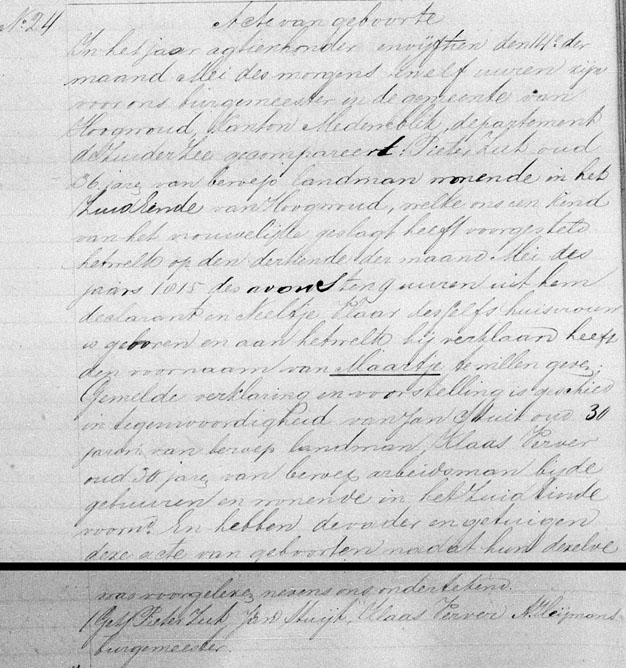 No. 24
Acte van geboorte
In het jaar agtienhonder envijftien den 14e der
maand Mei des morgens en elf uuren zijn
voor ons burgemeester in de gemeente van
Hoogwoud, Kanton Medenblik, departement
d'Zuider Zee gecompareert: Pieter Zut oud
36 jaren van beroep landman wonende in het
Zuid Eende van Hoogwoud, welke ons een kind
van het vrouwelijke geslagt heeft voorgesteld
hetwelk op den dertiende der maand Mei des
jaars 1815 des avons ten 9 uuren uit hem
declarant en Neeltje Klaar desselfs huisvrouw
is geboren en aan hetwelk hij verklaard heeft
den voornaam van Maartje te willen geven.
Gemelde verklaring en voorstelling is geschied
in tegenwoordigheid van Jan Stuit oud 30
jaaren van beroep landman, Klaas Verver
oud 30 jaren van beroep arbeidsman bijde
gebuuren en wonende in het Zuid Einde
voorn. En hebben de vader en getuigen
deze acte van geboorten nadat hun dezelve
was voorgelezen nevens ons ondertekend.
(Get) Pieter Zut, Jan Stuijt, Klaas Verver
burgemeester.